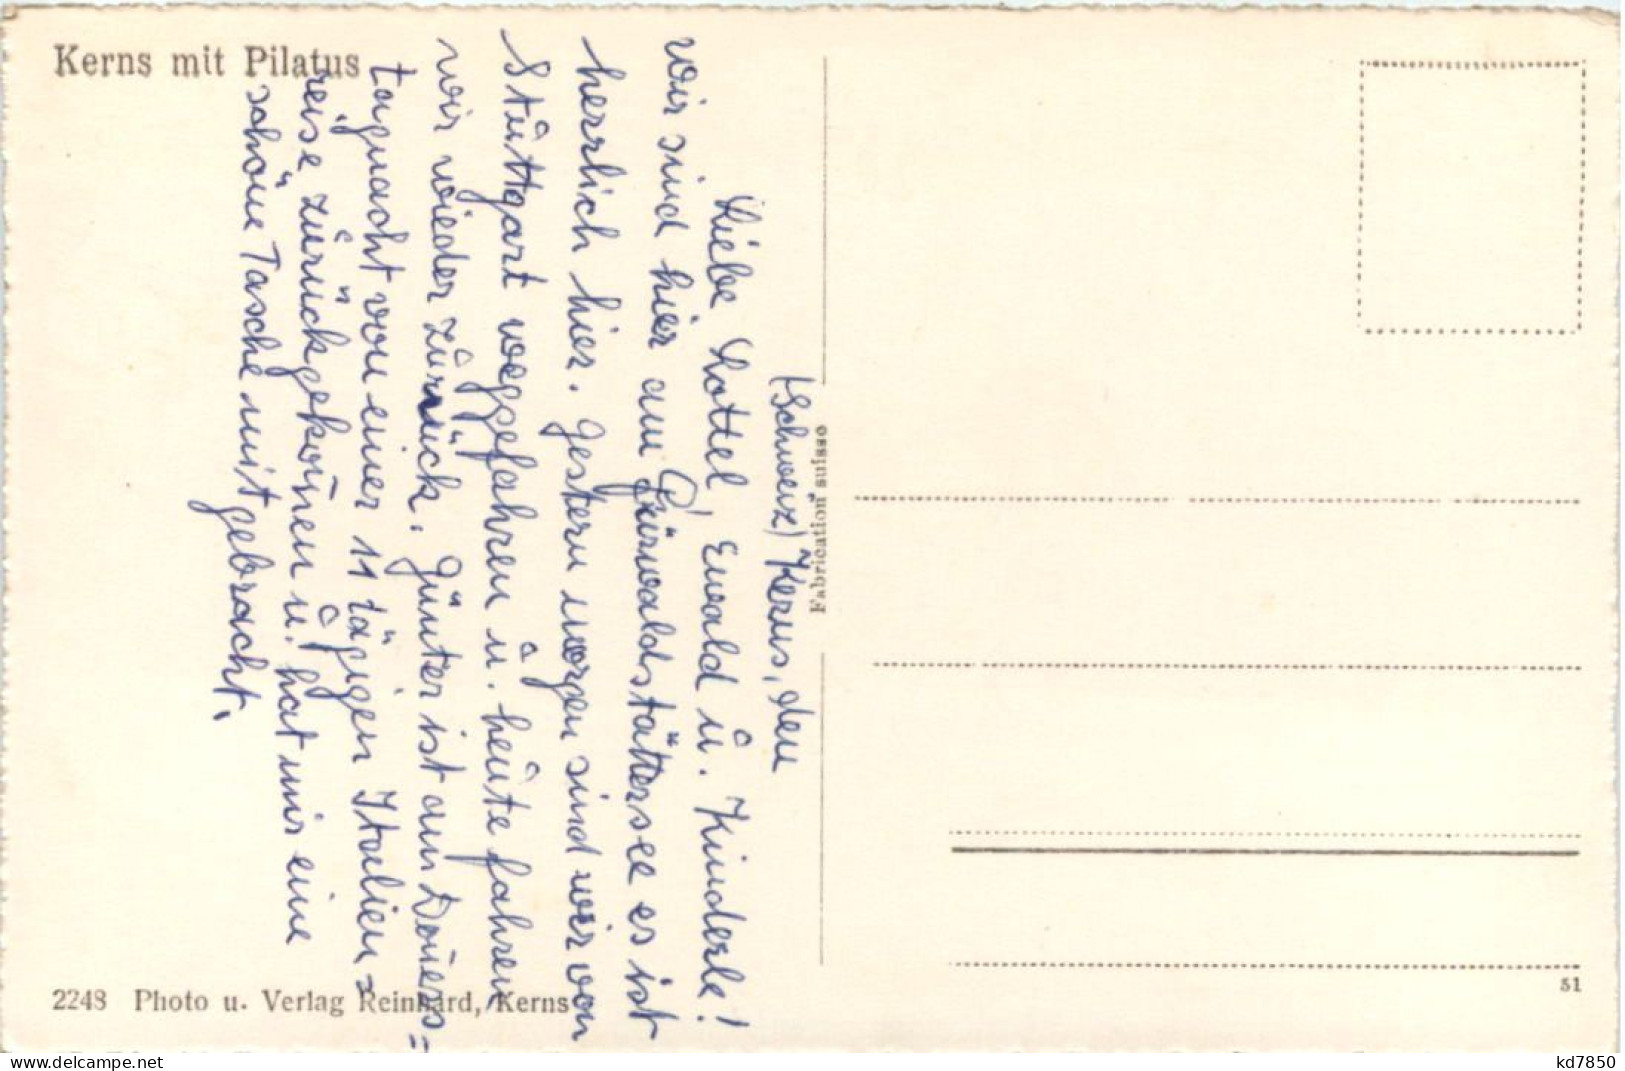 Kerns mit Pilatus
(Schweiz) Kerns, den
Liebe Lottel, Ewald u. Kinderle!
wir sind hier am Vierwaldstättersee es ist
herrlich hier. Gestern morgen sind wir von
Stuttgart weggefahren u. heute fahren
wir wieder zurück. Günter ist am Doners=
tagnacht von einer 11 tägigen Italien=
reise zurückgekom̄en u. hat mir eine
schöne Tasche mitgebracht.
Fabrication suisse
51
2248 Photo u. Verlag Reinhard, Kerns
delcampe.net
kd7850